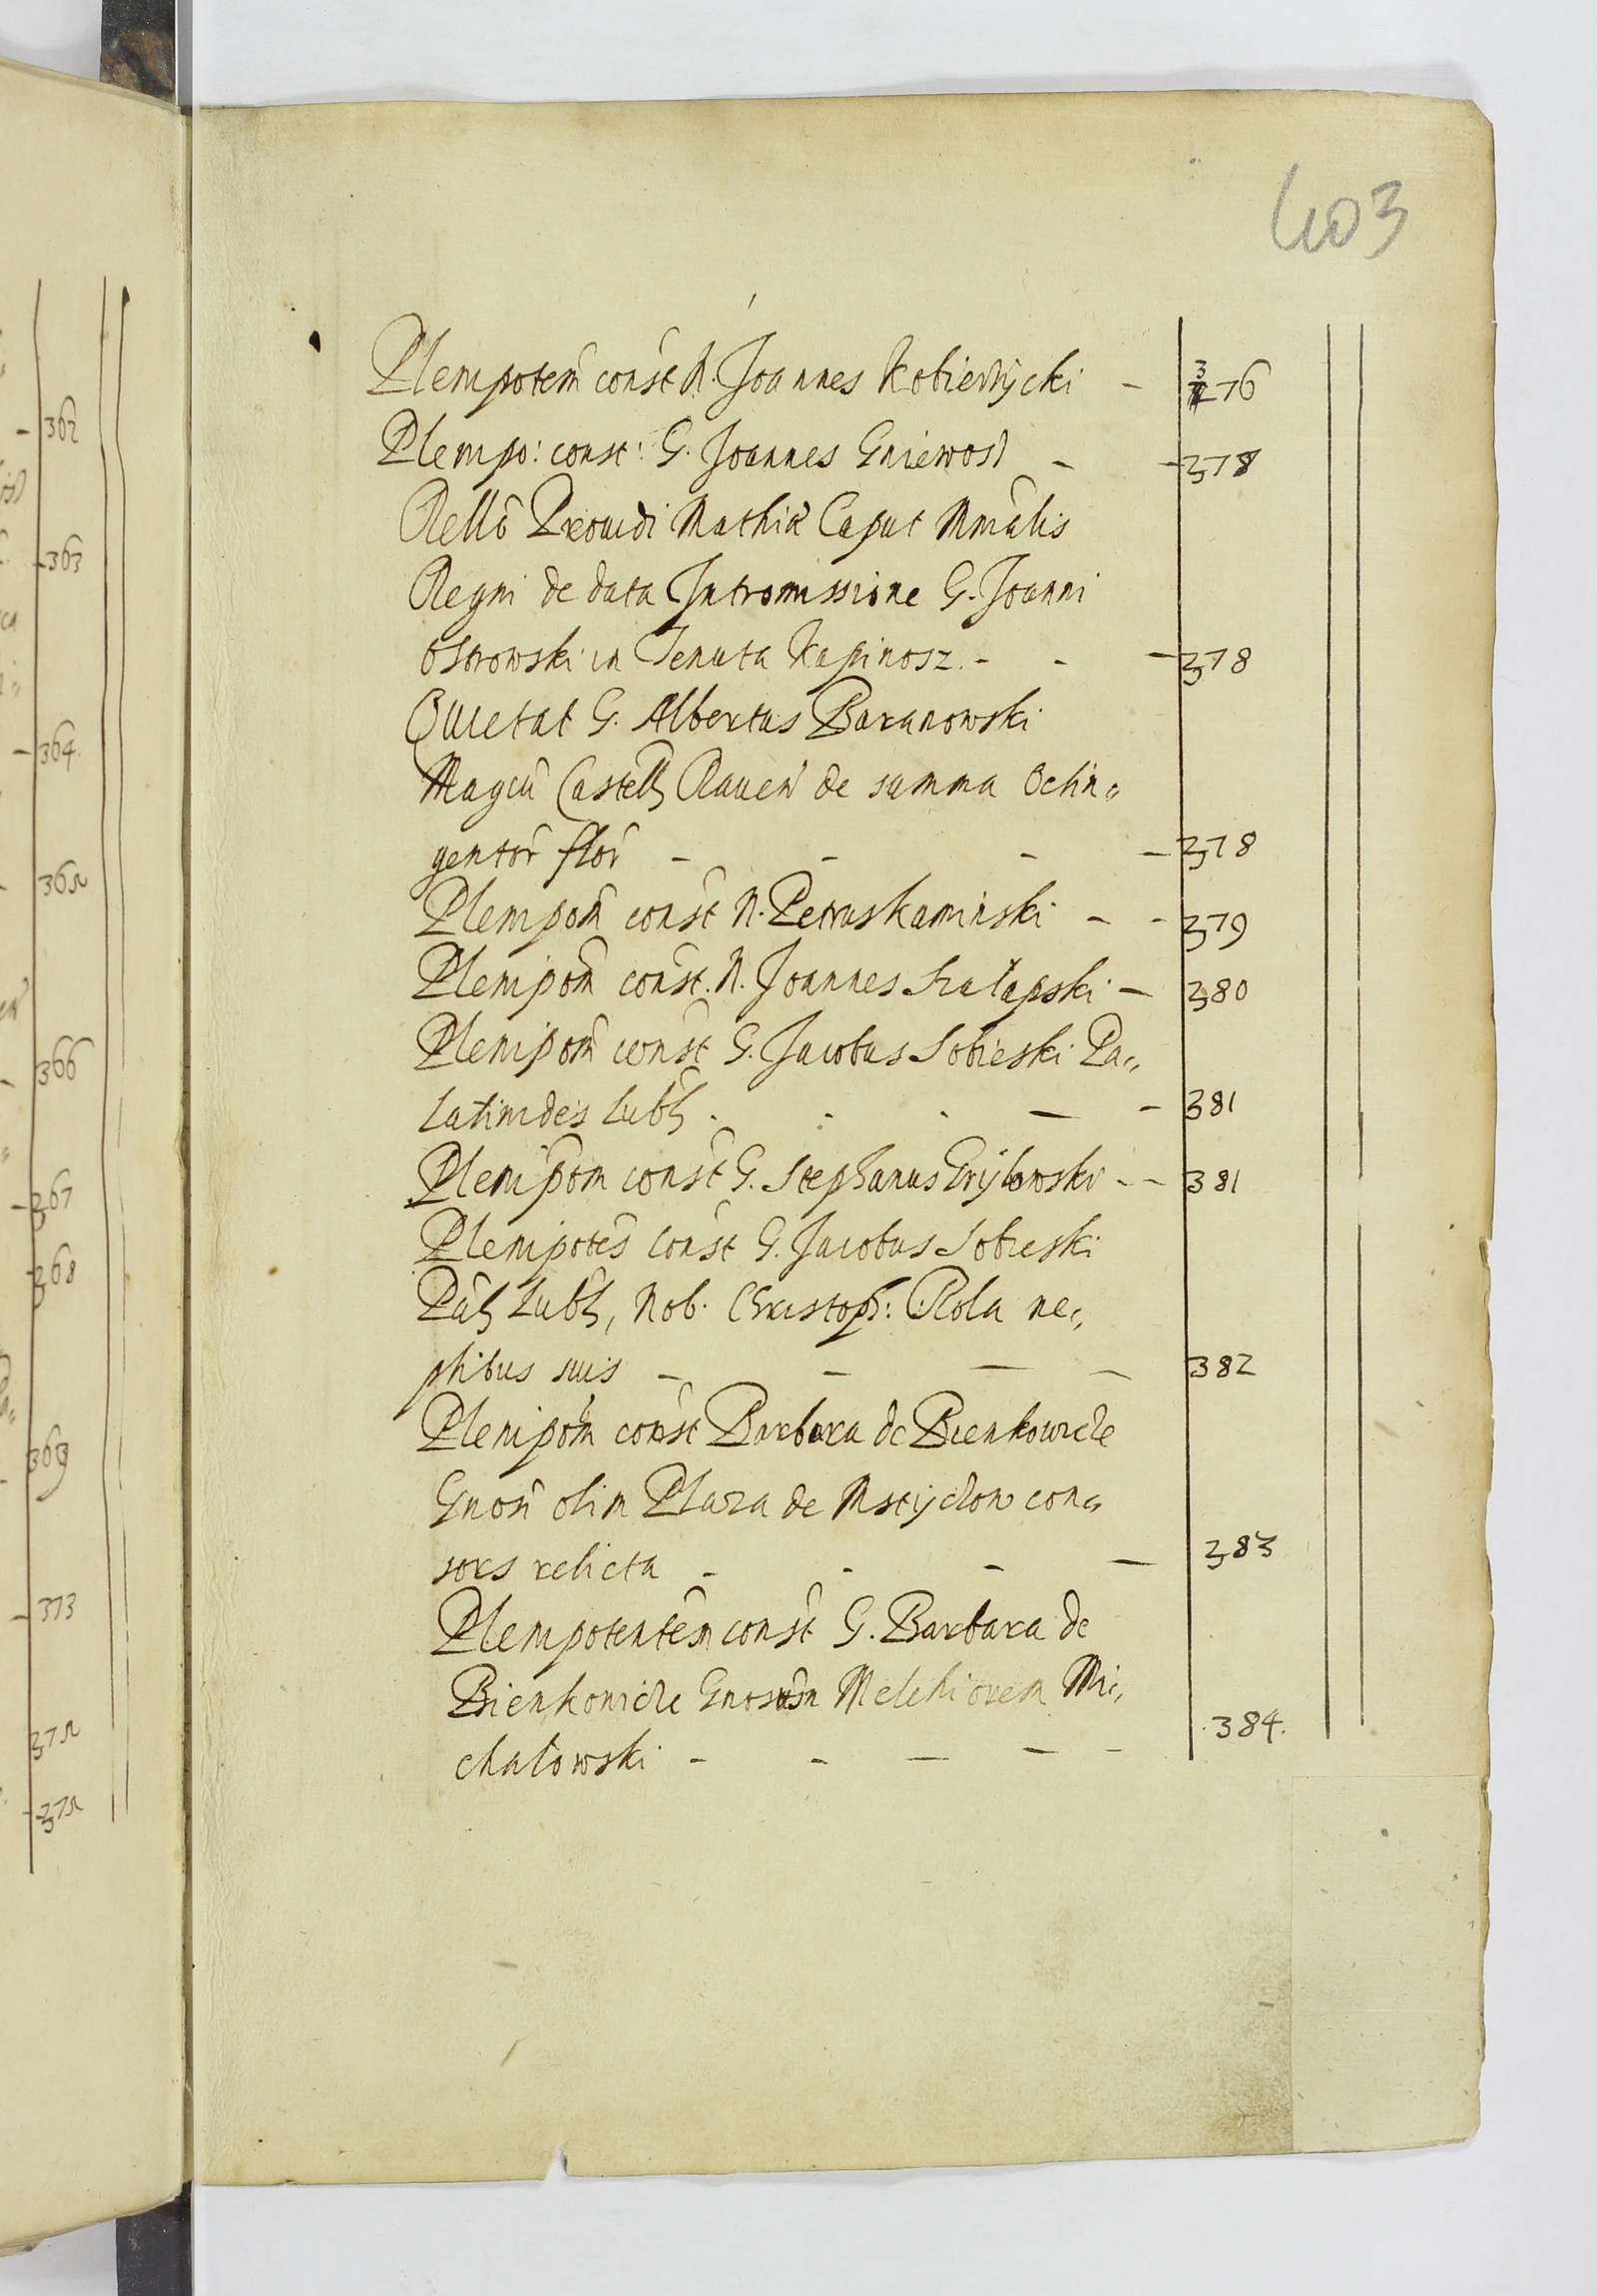 403
Plenipotem̃ const N. Joannes Kobierzÿcki - 376
Plenipo: const: G. Joannes Gniewosz - - 378
Rello Prouidi Mathiæ Caput Mrñalis
Regni de data Intromissione G. Joanni
Osorowski in Tenuta Kapinosz. - - - 378
Quietat G. Albertus Baranowski
Magcũ Castell Rauen de summa Octin„
gentor̃ flor̃ - - - - 378
Plenipom̃ const N. Petrus Kaminski - - 379
Plenipom̃ const. N. Joannes Szałapski - 380
Plenipom̃ const G. Jacobus Sobieski Pa„
latinides Lubl - - - - - 381
Plenipom̃ const G. Stephanus Grÿbowski - - 381
Plenipotes̃ const G. Jacobus Sobieski
Pal Lubl, Nob. Christoph: Rola ne„
ptibus suis - - - - 382
Plenipom̃ const Barbara de Bienkowicze
Gnosi olim Plaza de Msciÿczow con„
sors relicta - - - - 383
Plenipotentem̃ const G. Barbara de
Bienkowicze Gnosum Melchiorem Mi„
chałowski - - - - - 384.
362
363
364.
365
366
367
368
369
373
375
375